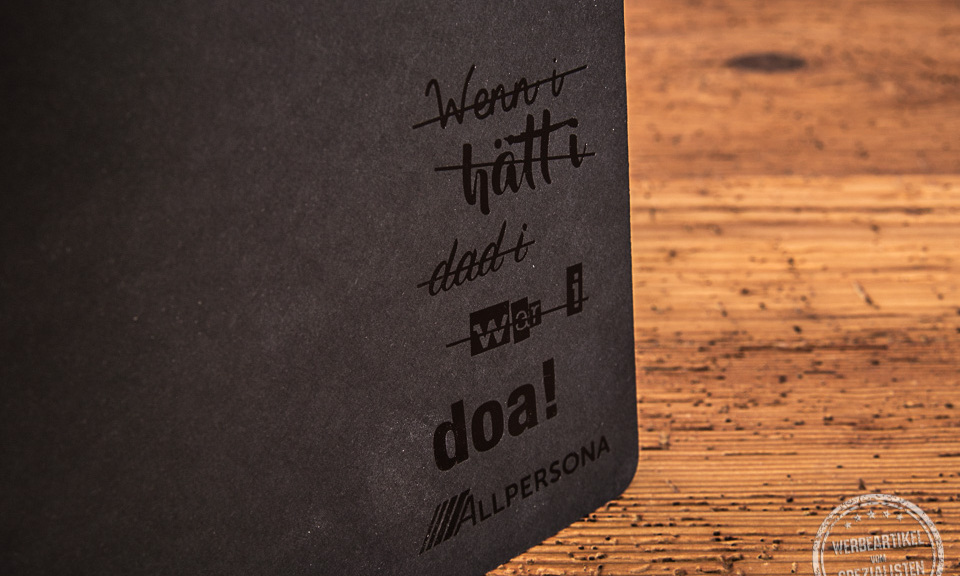 Wenn i
hätt i
dad i
war i
doa!
ALLPERSONA
WERBEARTIKEL
vom
SPEZIALISTEN